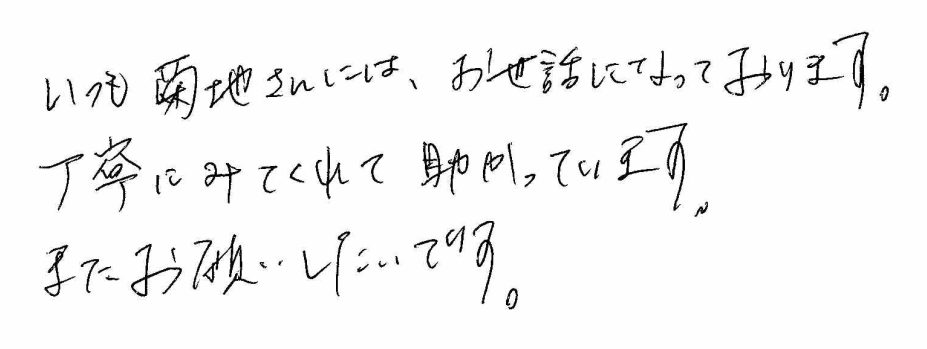 いつも菊地さんには、お世話になっております。
丁寧にみてくれて助かっています。
またお願いしたいです。